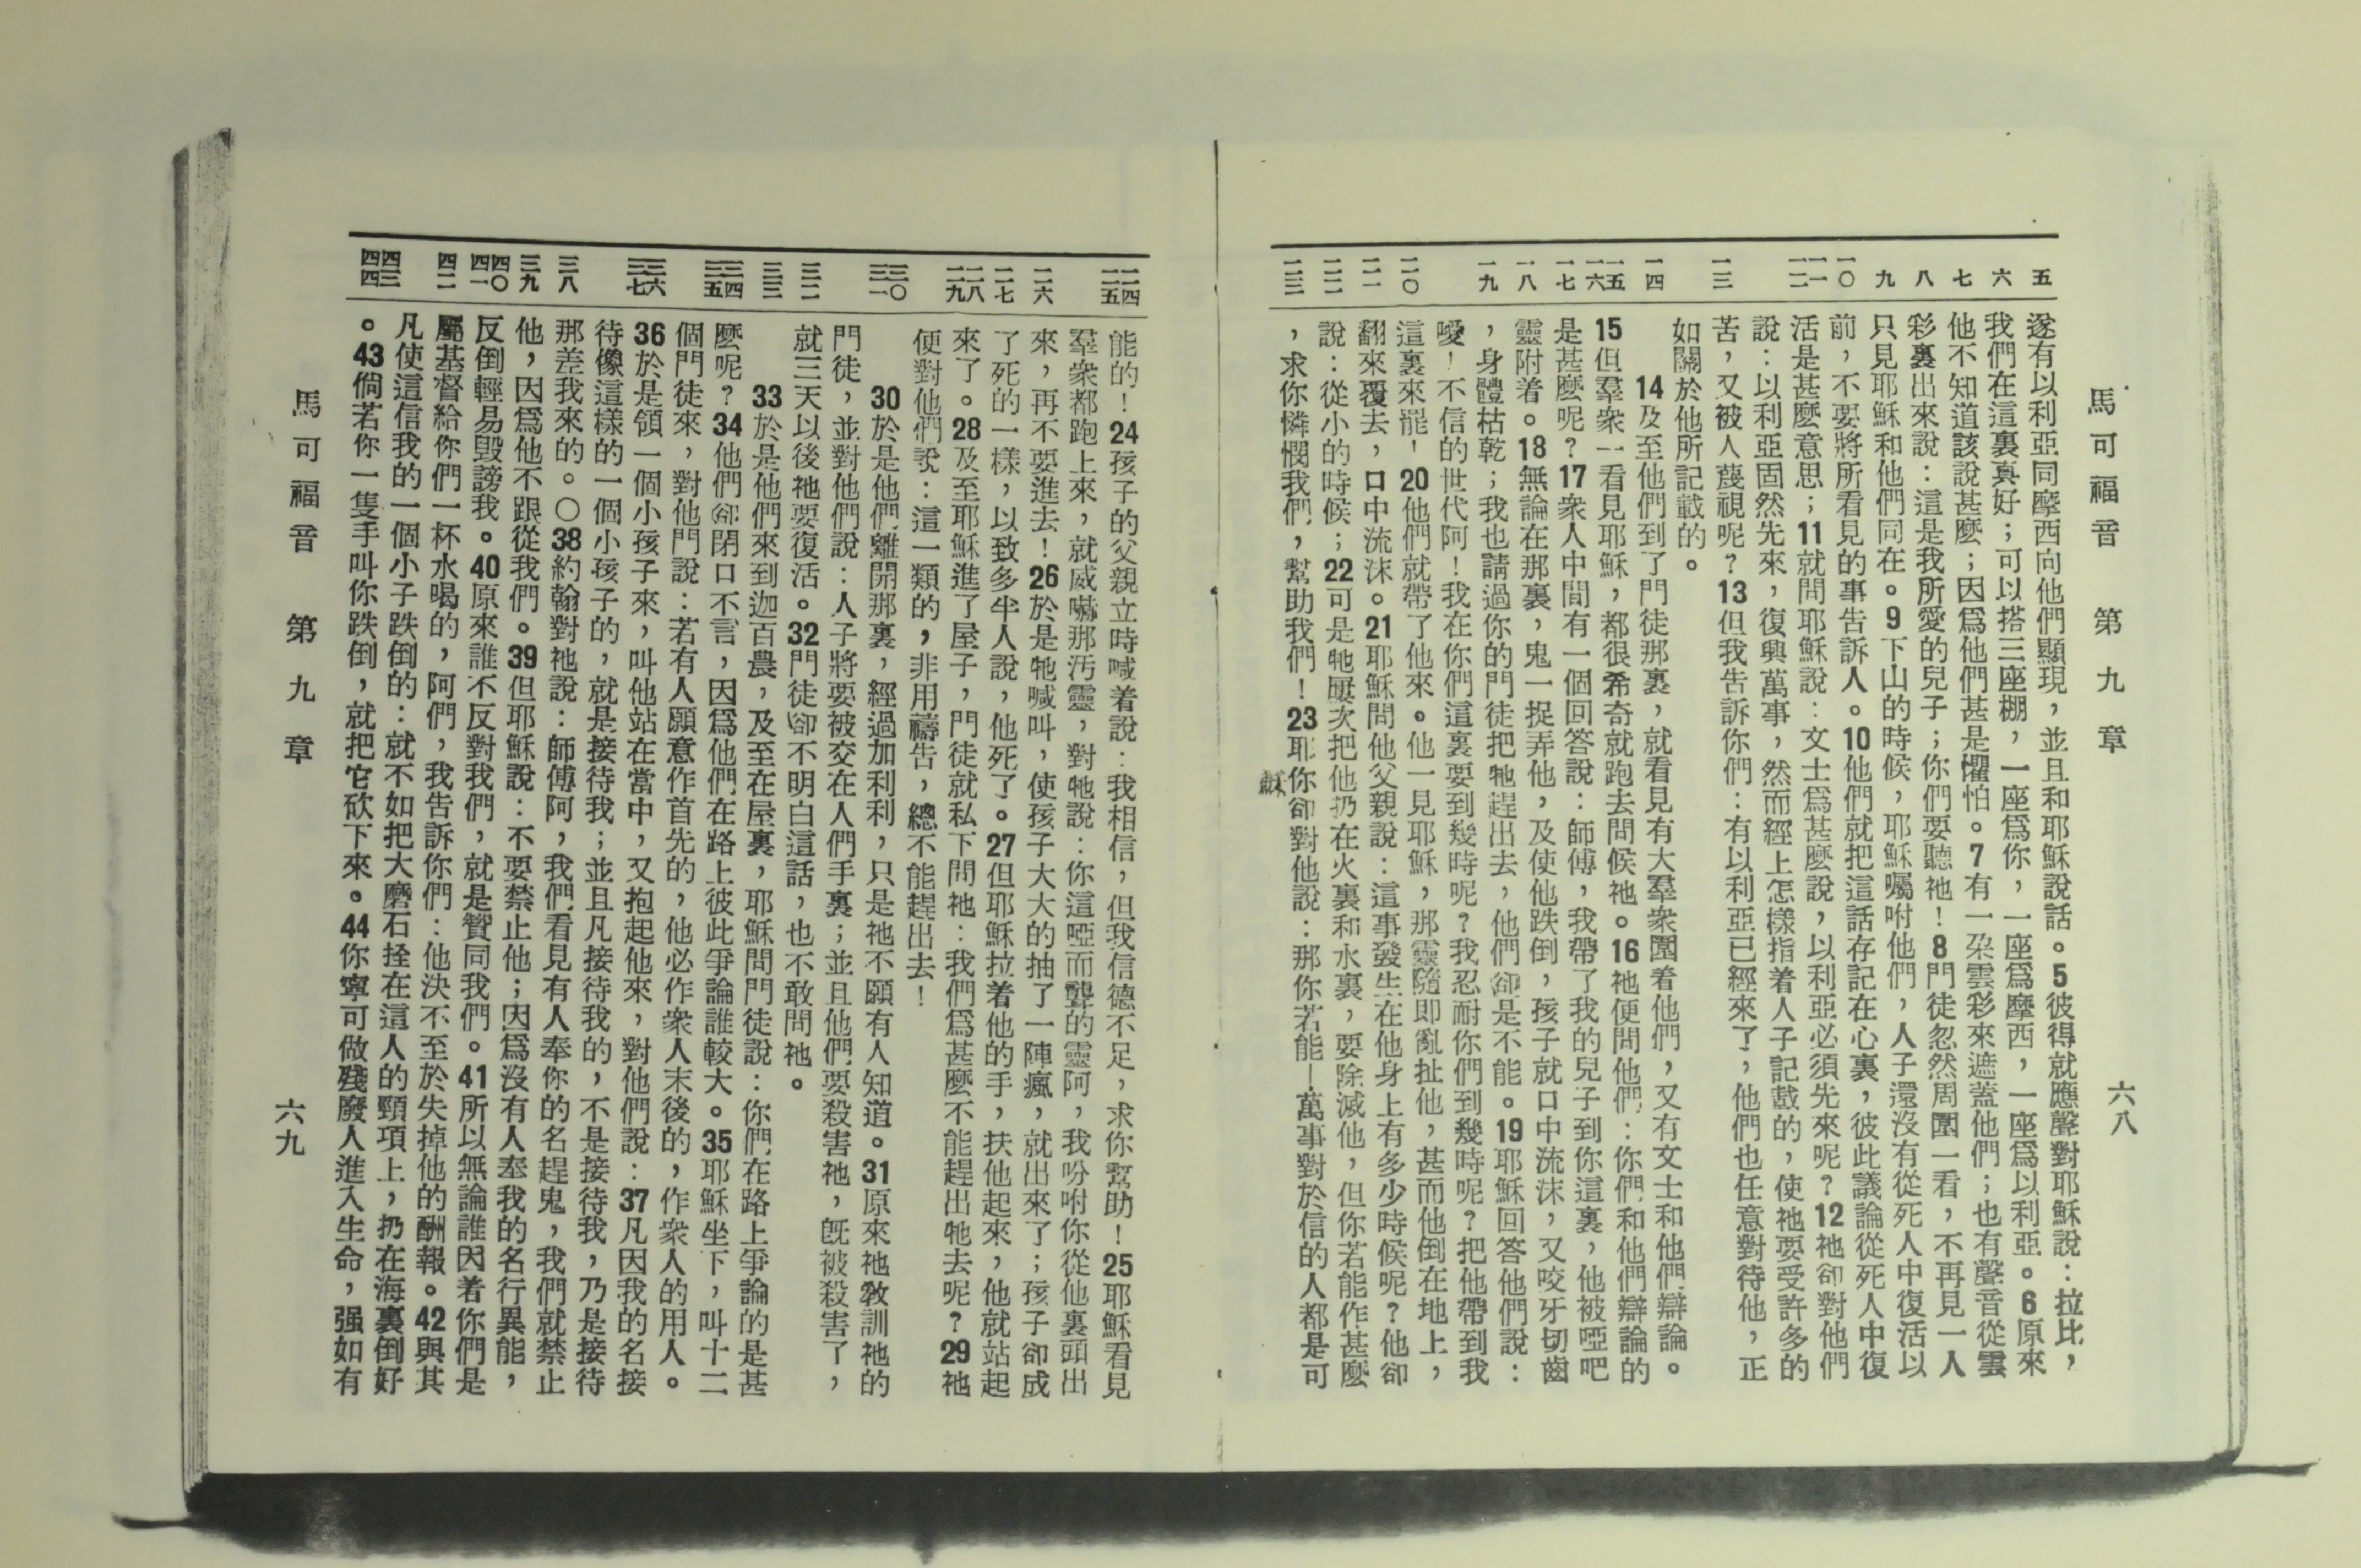 馬可福音 第九章 六八
五 六 七 八 九 一〇 一一 一二 一三 一四 一五 一六 一七 一八 一九 二〇 二一 二二 二三
遂有以利亞同摩西向他們顯現，並且和耶穌說話。5彼得就應聲對耶穌說：拉比，
我們在這裏真好；可以搭三座棚，一座爲你，一座爲摩西，一座爲以利亞。6原來
他不知道該說甚麼；因爲他們甚是懼怕。7有一朶雲彩來遮蓋他們；也有聲音從雲
彩裏出來說：這是我所愛的兒子；你們要聽祂！8門徒忽然周圍一看，不再見一人
只見耶穌和他們同在。9下山的時候，耶穌囑咐他們，人子還沒有從死人中復活以
前，不要將所看見的事告訴人。10他們就把這話存記在心裏，彼此議論從死人中復
活是甚麼意思；11就問耶穌說：文士爲甚麼說，以利亞必須先來呢？12祂卻對他們
說：以利亞固然先來，復興萬事，然而經上怎樣指着人子記載的，使祂要受許多的
苦，又被人蔑視呢？13但我告訴你們：有以利亞已經來了，他們也任意對待他，正
如關於他所記載的。
14及至他們到了門徒那裏，就看見有大羣衆圍着他們，又有文士和他們辯論。
15但羣衆一看見耶穌，都很希奇就跑去問候祂。16祂便問他們：你們和他們辯論的
是甚麼呢？17衆人中間有一個回答說：師傅，我帶了我的兒子到你這裏，他被啞吧
靈附着。18無論在那裏，鬼一捉弄他，及使他跌倒，孩子就口中流沫，又咬牙切齒
，身體枯乾；我也請過你的門徒把牠趕出去，他們卻是不能。19耶穌回答他們說：
噯！不信的世代阿！我在你們這裏要到幾時呢？我忍耐你們到幾時呢？把他帶到我
這裏來罷！20他們就帶了他來。他一見耶穌，那靈隨即亂扯他，甚而他倒在地上，
翻來覆去，口中流沫。21耶穌問他父親說：這事發生在他身上有多少時候呢？他卻
說：從小的時候；22可是牠屢次把他扔在火裏和水裏，要除滅他，但你若能作甚麼
，求你憐憫我們，幫助我們！23耶穌你卻對他說：那你若能－萬事對於信的人都是可
二四 二五 二六 二七 二八 二九 三〇 三一 三二 三三 三四 三五 三六 三七 三八 三九 四〇 四一 四二 四三 四四
能的！24孩子的父親立時喊着說：我相信，但我信德不足，求你幫助！25耶穌看見
羣衆都跑上來，就威嚇那汚靈，對牠說：你這啞而聾的靈阿，我吩咐你從他裏頭出
來，再不要進去！26於是牠喊叫，使孩子大大的抽了一陣瘋，就出來了；孩子卻成
了死的一樣，以致多半人說，他死了。27但耶穌拉着他的手，扶他起來，他就站起
來了。28及至耶穌進了屋子，門徒就私下問祂：我們爲甚麼不能趕出牠去呢？29祂
便對他們說：這一類的，非用禱告，總不能趕出去！
30於是他們離開那裏，經過加利利，只是祂不願有人知道。31原來祂敎訓祂的
門徒，並對他們說：人子將要被交在人們手裏；並且他們要殺害祂，旣被殺害了，
就三天以後祂要復活。32門徒卻不明白這話，也不敢問祂。
33於是他們來到迦百農，及至在屋裏，耶穌問門徒說：你們在路上爭論的是甚
麼呢？34他們卻閉口不言，因爲他們在路上彼此爭論誰較大。35耶穌坐下，叫十二
個門徒來，對他門說：若有人願意作首先的，他必作衆人末後的，作衆人的用人。
36於是領一個小孩子來，叫他站在當中，又抱起他來，對他們說：37凡因我的名接
待像這樣的一個小孩子的，就是接待我；並且凡接待我的，不是接待我，乃是接待
那差我來的。〇38約翰對祂說：師傅阿，我們看見有人奉你的名趕鬼，我們就禁止
他，因爲他不跟從我們。39但耶穌說：不要禁止他；因爲沒有人奉我的名行異能，
反倒輕易毀謗我。40原來誰不反對我們，就是贊同我們。41所以無論誰因着你們是
屬基督給你們一杯水喝的，阿們，我告訴你們：他決不至於失掉他的酬報。42與其
凡使這信我的一個小子跌倒的：就不如把大磨石拴在這人的頸項上，扔在海裏倒好
。43倘若你一隻手叫你跌倒，就把它砍下來。44你寧可做殘廢人進入生命，强如有
馬可福音 第九章 六九